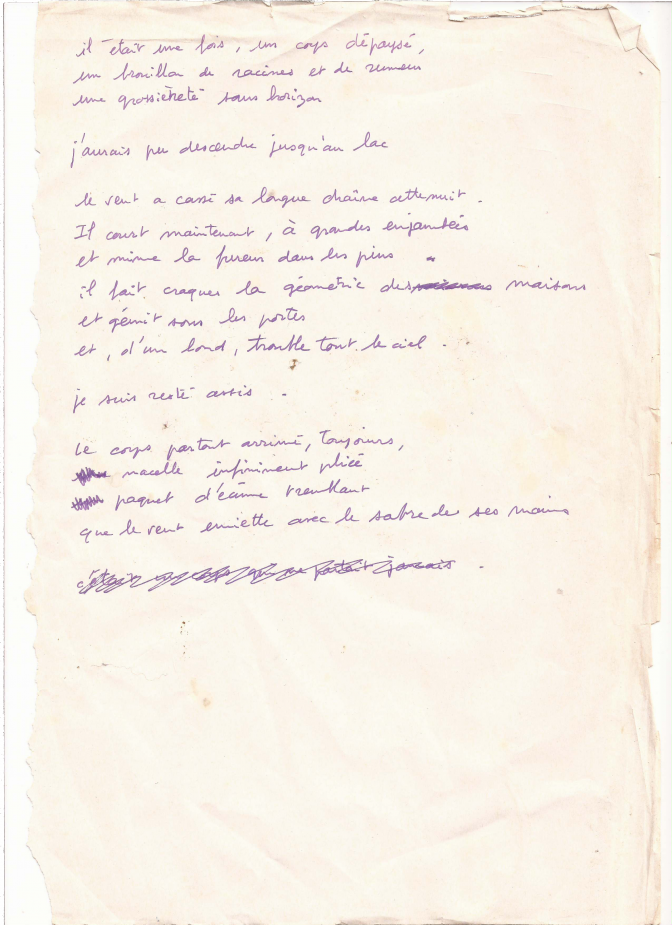 il était une fois, un corps dépaysé,
un brouillon de racines et de rumeurs
une grossièreté sans horizon
j'aurais pu descendre jusqu'au lac
le vent a cassé sa longue chaîne cette nuit.
Il court maintenant, à grandes enjambées
et mime la fureur dans les pins
il fait craquer la géométrie des maisons
et gémit sous les portes
et, d'un bond, trouble tout le ciel.
je suis resté assis.
Le corps partout arrimé, toujours,
nacelle infiniment plicé
paquet d'écume tremblant
que le vent émiette avec le sabre de ses mains